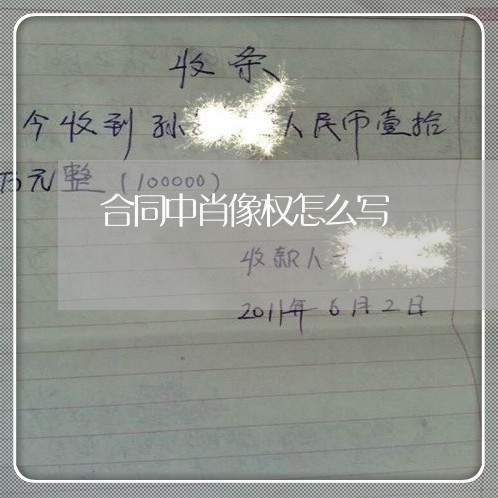 收条
今收到孙人民币壹拾
万元整(100000)
合同中肖像权怎么写
收款人
2011年6月2日